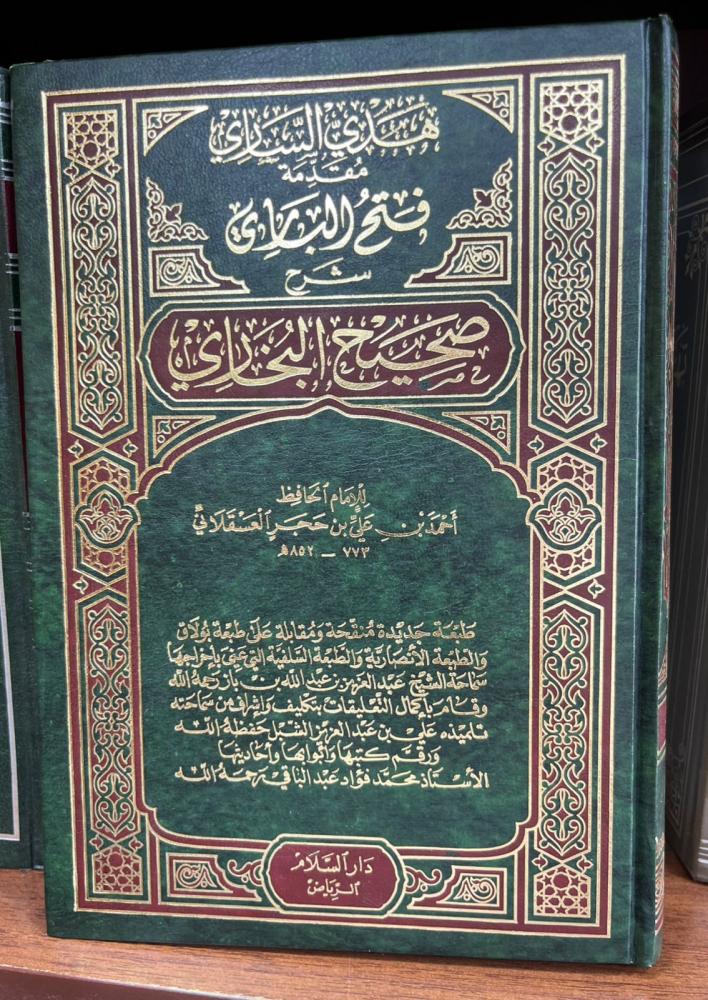 هُدَي السَّارِي
مُقَدِّمَة
فَتْحُ البَارِي
شرح
صَحِيْح البُخَارِي
لِلإِمَام الحَافِظ
أَحْمَد بْن عَلِيّ بْن حَجَرِ العَسْقَلَانِيّ
٧٧٣ – ٨٥٢هـ
طَبْعَة جَدِيْدَة مُنَقَّحَة وَمُقَابَلَة عَلَى طَبْعَة بُولَاق
وَالطَّبْعَة الأَنْصَارِيَّة وَالطَّبْعَة السَّلَفِيَّة الَّتِي عَنَى بِإِخْرَاجِهَا
سَمَاحَة الشَّيْخ عَبْد العَزِيْز بْن عَبْد اللّٰه بْن بَاز رَحِمَهُ اللّٰه
وَقَام بِإِكْمَال التَّعْلِيْقَات بِتَكْلِيْف وَإِشْرَاف مِنْ سَمَاحَتِه
تِلْمِيْذه عَلِيّ بْن عَبْد العَزِيْز الشِّبْل حَفِظَهُ اللّٰه
وَرَقَّم كُتُبَهَا وَأَبْوَابَهَا وَأَحَادِيْثَهَا
الأُسْتَاذ مُحَمَّد فُؤَاد عَبْد البَاقِي رَحِمَهُ اللّٰه
دَار السَّلَام
الرِّيَاض